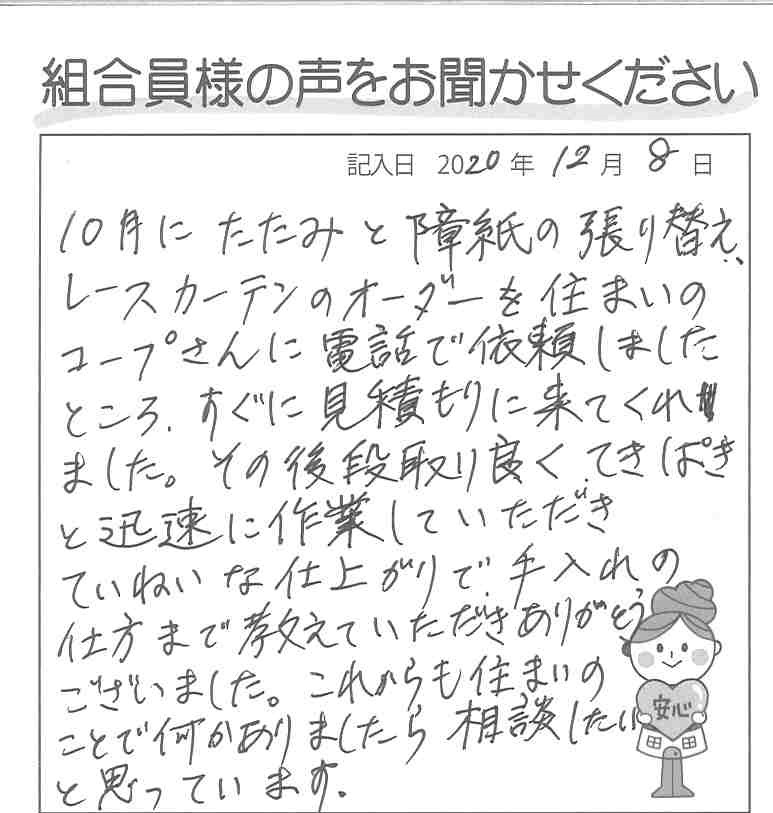 組合員様の声をお聞かせください
記入日 2020年 12月 8日
10月に たたみと障紙の張り替え、
レースカーテンのオーダーを住まいの
コープさんに電話で依頼しました
ところ、すぐに見積もりに来てくれ
ました。その後段取り良く、てきぱき
と迅速に作業していただき
ていねいな仕上がりで、手入れの
仕方まで教えていただきありがとう
ございました。これからも住まいの
ことで何かありましたら相談したい
と思っています。
安心